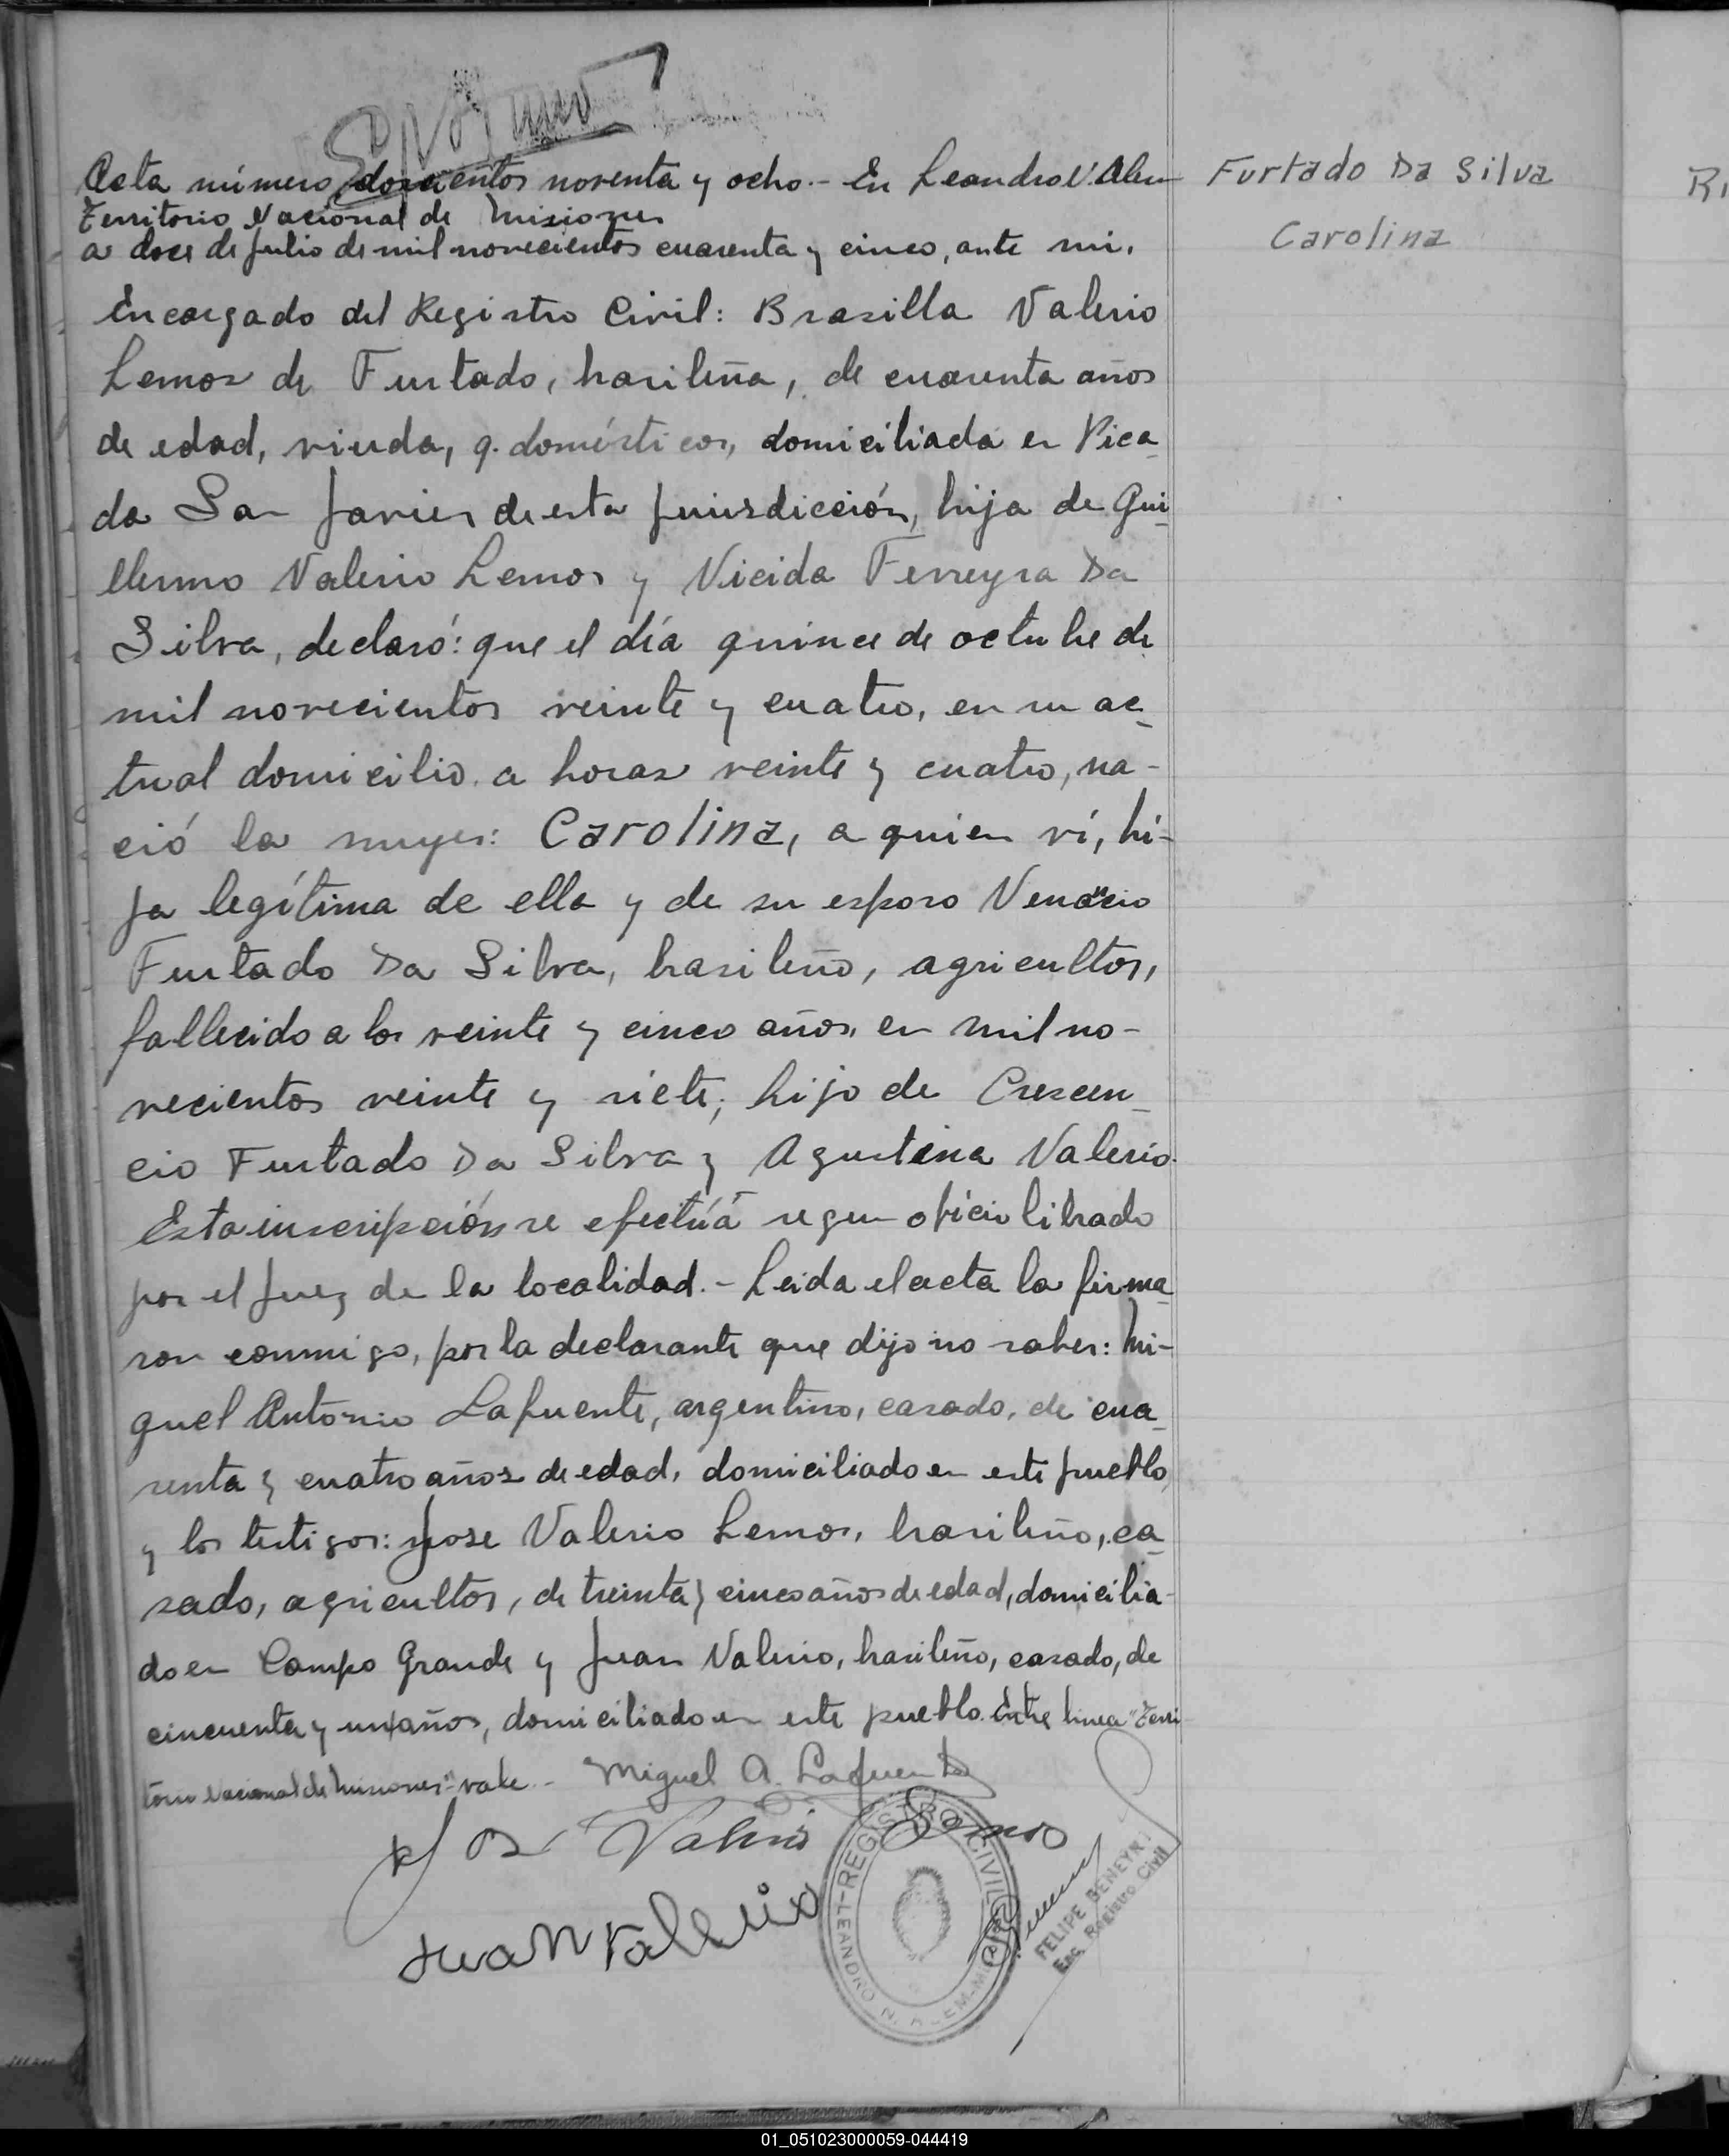 Acta número doscientos noventa y ocho.- En Leandro N. Alem
Territorio Nacional de Misiones
a doce de julio de mil novecientos cuarenta y cinco, ante mi,
Encargado del Registro Civil: Brasilla Valerio
Lemos de Furtado, brasileña, de cuarenta años
de edad, viuda, q. domésticos, domiciliada en Pica
da San Javier de esta jurisdicción, hija de Gui
llermo Valerio Lemos y Vicida Ferreyra Da
Silva, declaró: que el día quince de octubre de
mil novecientos veinte y cuatro, en su ac
tual domicilio a horas veinte y cuatro, na-
ció la mujer: Carolina, a quien ví, hi-
ja legítima de ella y de su esposo Venancio
Furtado Da Silva, brasileño, agricultor,
fallecido a los veinte y cinco años, en mil no-
vecientos veinte y siete, hijo de Crescen
cio Furtado Da Silva y Agustina Valerio.
Esta inscripción se efectúa segun oficio librado
por el juez de la localidad.- Leida el acta la firma
ron conmigo, por la declarante que dijo no saber: Mi-
guel Antonio Lafuente, argentino, casado, de cua
renta y cuatro años de edad, domiciliado en este pueblo
y los testigos: Jose Valerio Lemos, brasileño, ca
sado, agricultor, de treinta y cinco años de edad, domicilia-
do en Campo Grande y Juan Valerio, brasileño, casado, de
cincuenta y un años, domiciliado en este pueblo. Entre linea "Terri
torio Nacional de Misiones" vale.- Miguel A. Lafuente
Valerio Lemos
Juan Valerio
REGISTRO CIVIL
LEANDRO N. ALEM
FELIPE BENEYRI
Enc. Registro Civil
Furtado Da Silva
Carolina
01_051023000059-044419